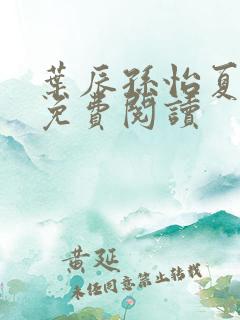 葉辰孫怡夏
免費閱讀
黃延
未經同意禁止轉載